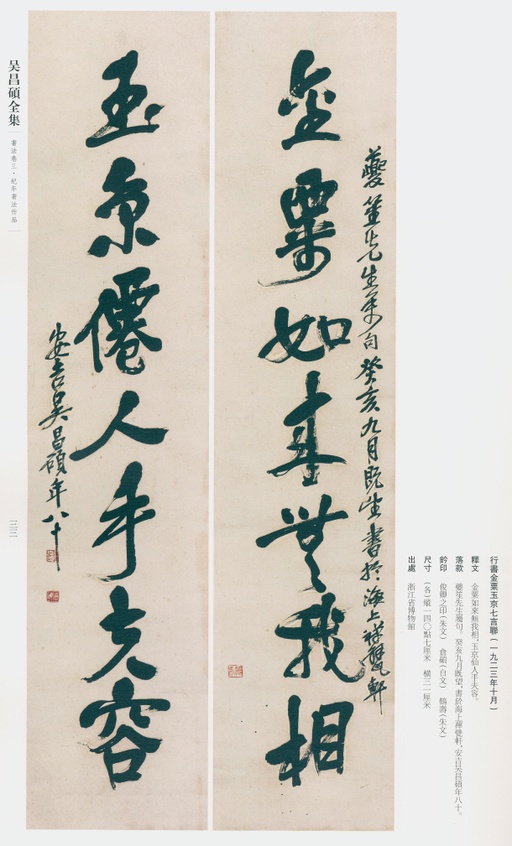 金粟如來無我相
夔笙先生屬句癸亥九月既生書於海上禪甓軒
玉京僊人手夫容
安吉吴昌碩年八十
行書金粟玉京七言聯（一九二三年十月）
釋文　金粟如來無我相，玉京仙人手夫容。
落款　夔笙先生屬句。癸亥九月既望，書於海上禪甓軒，安吉吴昌碩年八十。
鈐印　俊卿之印（朱文）　倉碩（白文）　鶴壽（朱文）
尺寸　（各）縱一四〇點七厘米　橫三一厘米
出處　浙江省博物館
吴昌碩全集
書法卷三·紀年書法作品